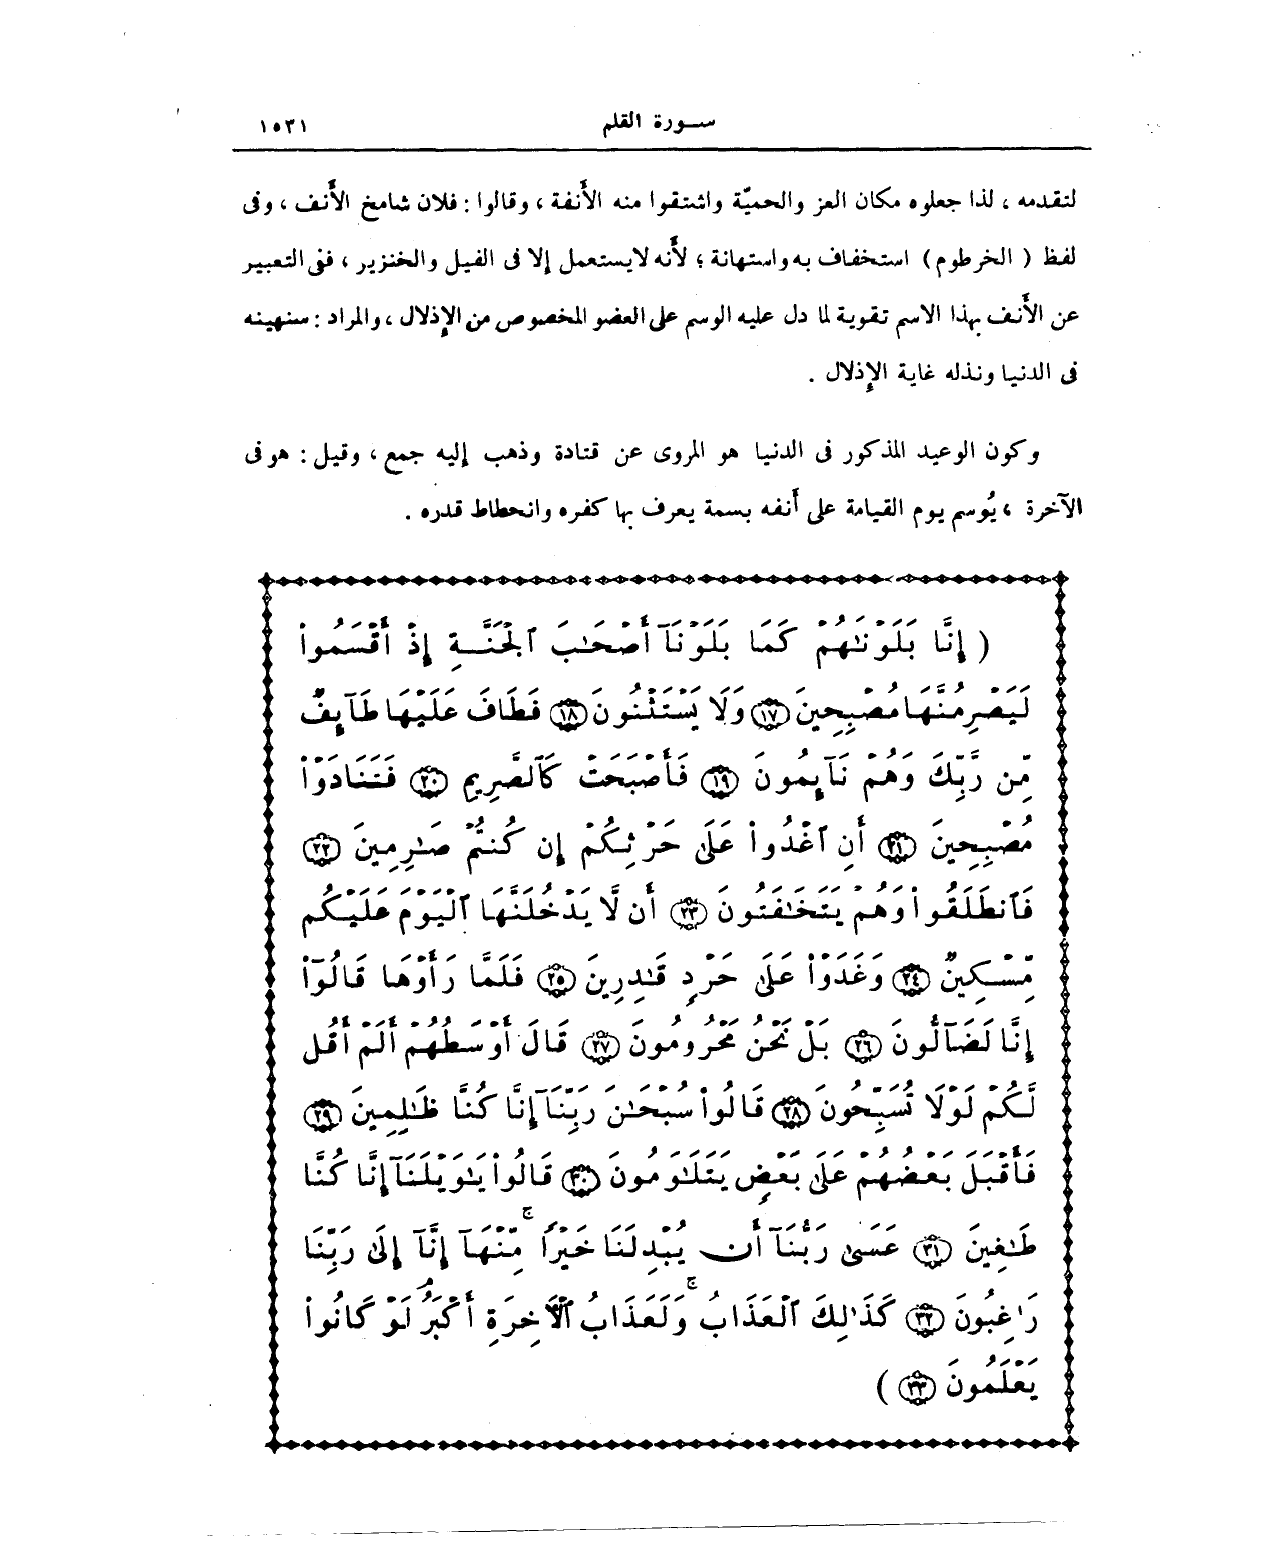 سورة القلم ١٥٣١
لتقدمه ، لذا جعلوه مكان العز والحميّة واشتقوا منه الأَنفة ، وقالوا : فلان شامخ الأَنف ، وفى
لفظ ( الخرطوم ) استخفاف به واستهانة ؛ لأَنه لا يستعمل إلا فى الفيل والخنزير ، ففى التعبير
عن الأَنف بهذا الاسم تقوية لما دل عليه الوسم على العضو المخصوص من الإذلال ، والمراد : سنهينه
فى الدنيا ونذله غاية الإذلال .
وكون الوعيد المذكور فى الدنيا هو المروى عن قتادة وذهب إليه جمع ، وقيل : هو فى
الآخرة ، يُوسم يوم القيامة على أَنفه بسمة يعرف بها كفره وانحطاط قدره .
( إِنَّا بَلَوْنَٰهُمْ كَمَا بَلَوْنَآ أَصْحَٰبَ ٱلْجَنَّةِ إِذْ أَقْسَمُوا۟
لَيَصْرِمُنَّهَا مُصْبِحِينَ ١٧ وَلَا يَسْتَثْنُونَ ١٨ فَطَافَ عَلَيْهَا طَآئِفٌ
مِّن رَّبِّكَ وَهُمْ نَآئِمُونَ ١٩ فَأَصْبَحَتْ كَٱلصَّرِيمِ ٢٠ فَتَنَادَوْا۟
مُصْبِحِينَ ٢١ أَنِ ٱغْدُوا۟ عَلَىٰ حَرْثِكُمْ إِن كُنتُمْ صَٰرِمِينَ ٢٢
فَٱنطَلَقُوا۟ وَهُمْ يَتَخَٰفَتُونَ ٢٣ أَن لَّا يَدْخُلَنَّهَا ٱلْيَوْمَ عَلَيْكُم
مِّسْكِينٌ ٢٤ وَغَدَوْا۟ عَلَىٰ حَرْدٍ قَٰدِرِينَ ٢٥ فَلَمَّا رَأَوْهَا قَالُوٓا۟
إِنَّا لَضَآلُّونَ ٢٦ بَلْ نَحْنُ مَحْرُومُونَ ٢٧ قَالَ أَوْسَطُهُمْ أَلَمْ أَقُل
لَّكُمْ لَوْلَا تُسَبِّحُونَ ٢٨ قَالُوا۟ سُبْحَٰنَ رَبِّنَآ إِنَّا كُنَّا ظَٰلِمِينَ ٢٩
فَأَقْبَلَ بَعْضُهُمْ عَلَىٰ بَعْضٍ يَتَلَٰوَمُونَ ٣٠ قَالُوا۟ يَٰوَيْلَنَآ إِنَّا كُنَّا
طَٰغِينَ ٣١ عَسَىٰ رَبُّنَآ أَن يُبْدِلَنَا خَيْرًا مِّنْهَآ إِنَّآ إِلَىٰ رَبِّنَا
رَٰغِبُونَ ٣٢ كَذَٰلِكَ ٱلْعَذَابُ ۖ وَلَعَذَابُ ٱلْءَاخِرَةِ أَكْبَرُ ۚ لَوْ كَانُوا۟
يَعْلَمُونَ ٣٣ )